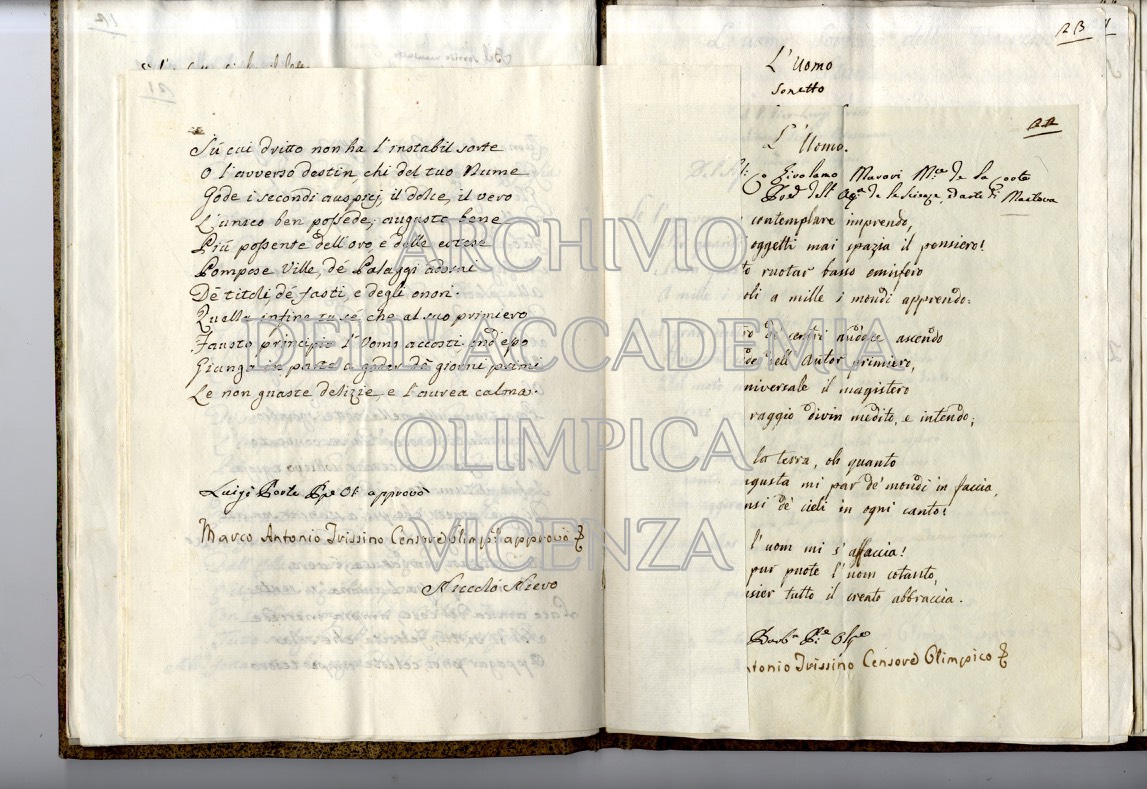 Sú cui dritto non ha l'instabil sorte
O l'avverso destin chi del tuo Nume
Gode i secondi auspicj, il dolce, il vero
L'unico ben possede; auguste bene
Più possente dell'oro e delle eccese
Pompose Ville, dé Palaggi adorni
Dé titoli dé fasti e degli onori.
Quella infine tu sé che al suo primiero
Fausto principio l'Uomo accosti, ond'epo
Giunga in parte a goder dè giorni primi
Le non guaste delizie, e l'aurea calma.
Luigi Porto Ppe Ol. approvò
Marco Antonio Trissino Censore Olimp. approvò
Niccoló Nievo
23
L'Uomo
Sonetto
22
L'Uomo.
Co Girolamo Murari de la Corte
de la Scienze, d'arte di Mantova
contemplare imprendo,
oggetti mai spazia il pensiero!
ruotar basso emisfero
a mille i mondi apprendo:
de' centri audace ascendo
dell'Autor primiero,
niversale il magistero
raggio divin medito, e intendo;
la terra, oh quanto
ngusta mi par de' mondi in faccia,
nsi de' cieli in ogni canto!
l'uom mi s'affaccia!
pur puote l'uom cotanto,
nsier tutto il creato abbraccia.
ntonio Trissino Censore Olimpico
ARCHIVIO
DELL'ACCADEMIA
OLIMPICA
VICENZA